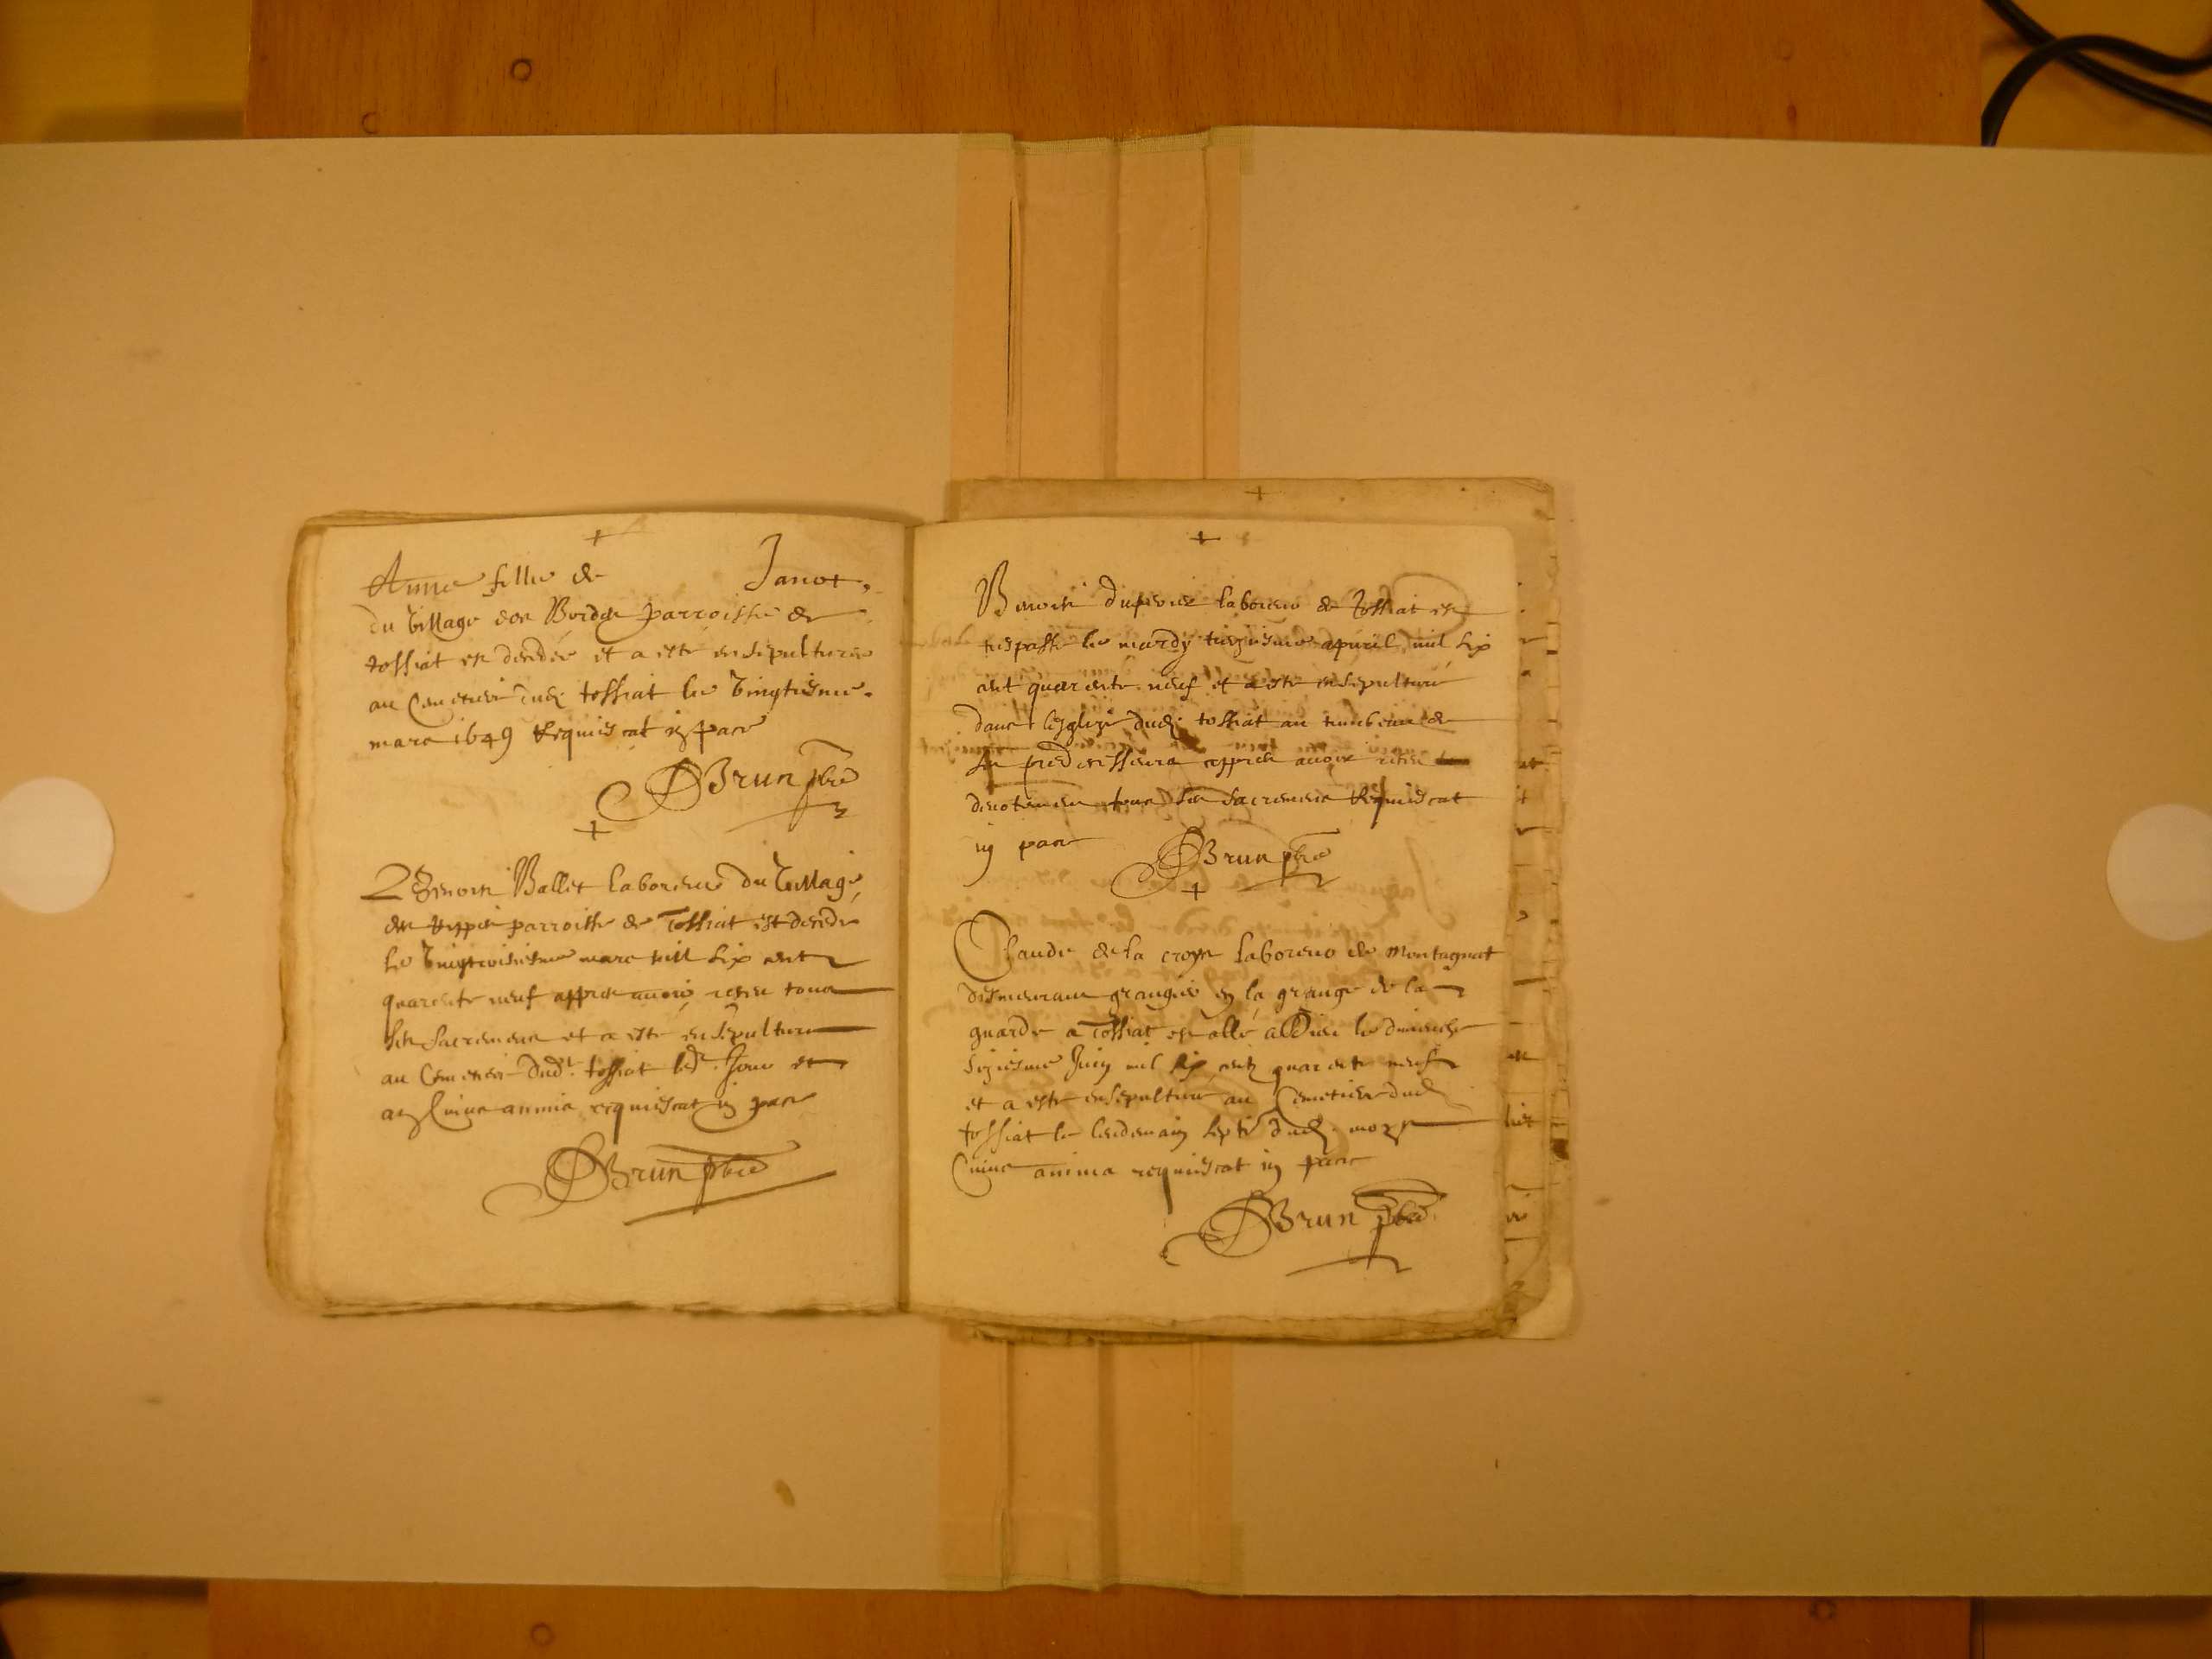 Anne fille de Janot.
du village des Bordes parroisse de
tossiat est decedée et a este ensepulturee
au Cemetiere dud. tossiat le vingtiesme.
mars 1649 Requiescat in pace
Brun pbre
Benoist Ballet laboreur du village
des parroisse de Tossiat est decede
le vingtroisiesme mars mil six cent
quarente neuf appres avoir receu tous
les sacremens et a este ensepulture
au Cemetiere dudt. tossiat ledt. jour et
an Cuius anima requiescat in pace
Brun pbre
Benoist laboreur de Tossiat est
trespasse le mardy apvril mil six
cent quarente neuf et a este ensepulturé
dans l'esglize dud. tossiat au tumbeau de
ses predecesseurs appres avoir receu
devotement tous les sacremens Requiescat
in pace Brun pbre
Claude de la croyx laboreur de Montagnat
demeurant grangier en la grange de la
guarde a Tossiat est allé a Dieu le dimenche
sixiesme Juin mil six cent quarente neuf
et a este ensepulturé au Cemetiere dud.
tossiat le lendemain septie dud. moys
Cuius anima requiescat in pace
Brun pbre